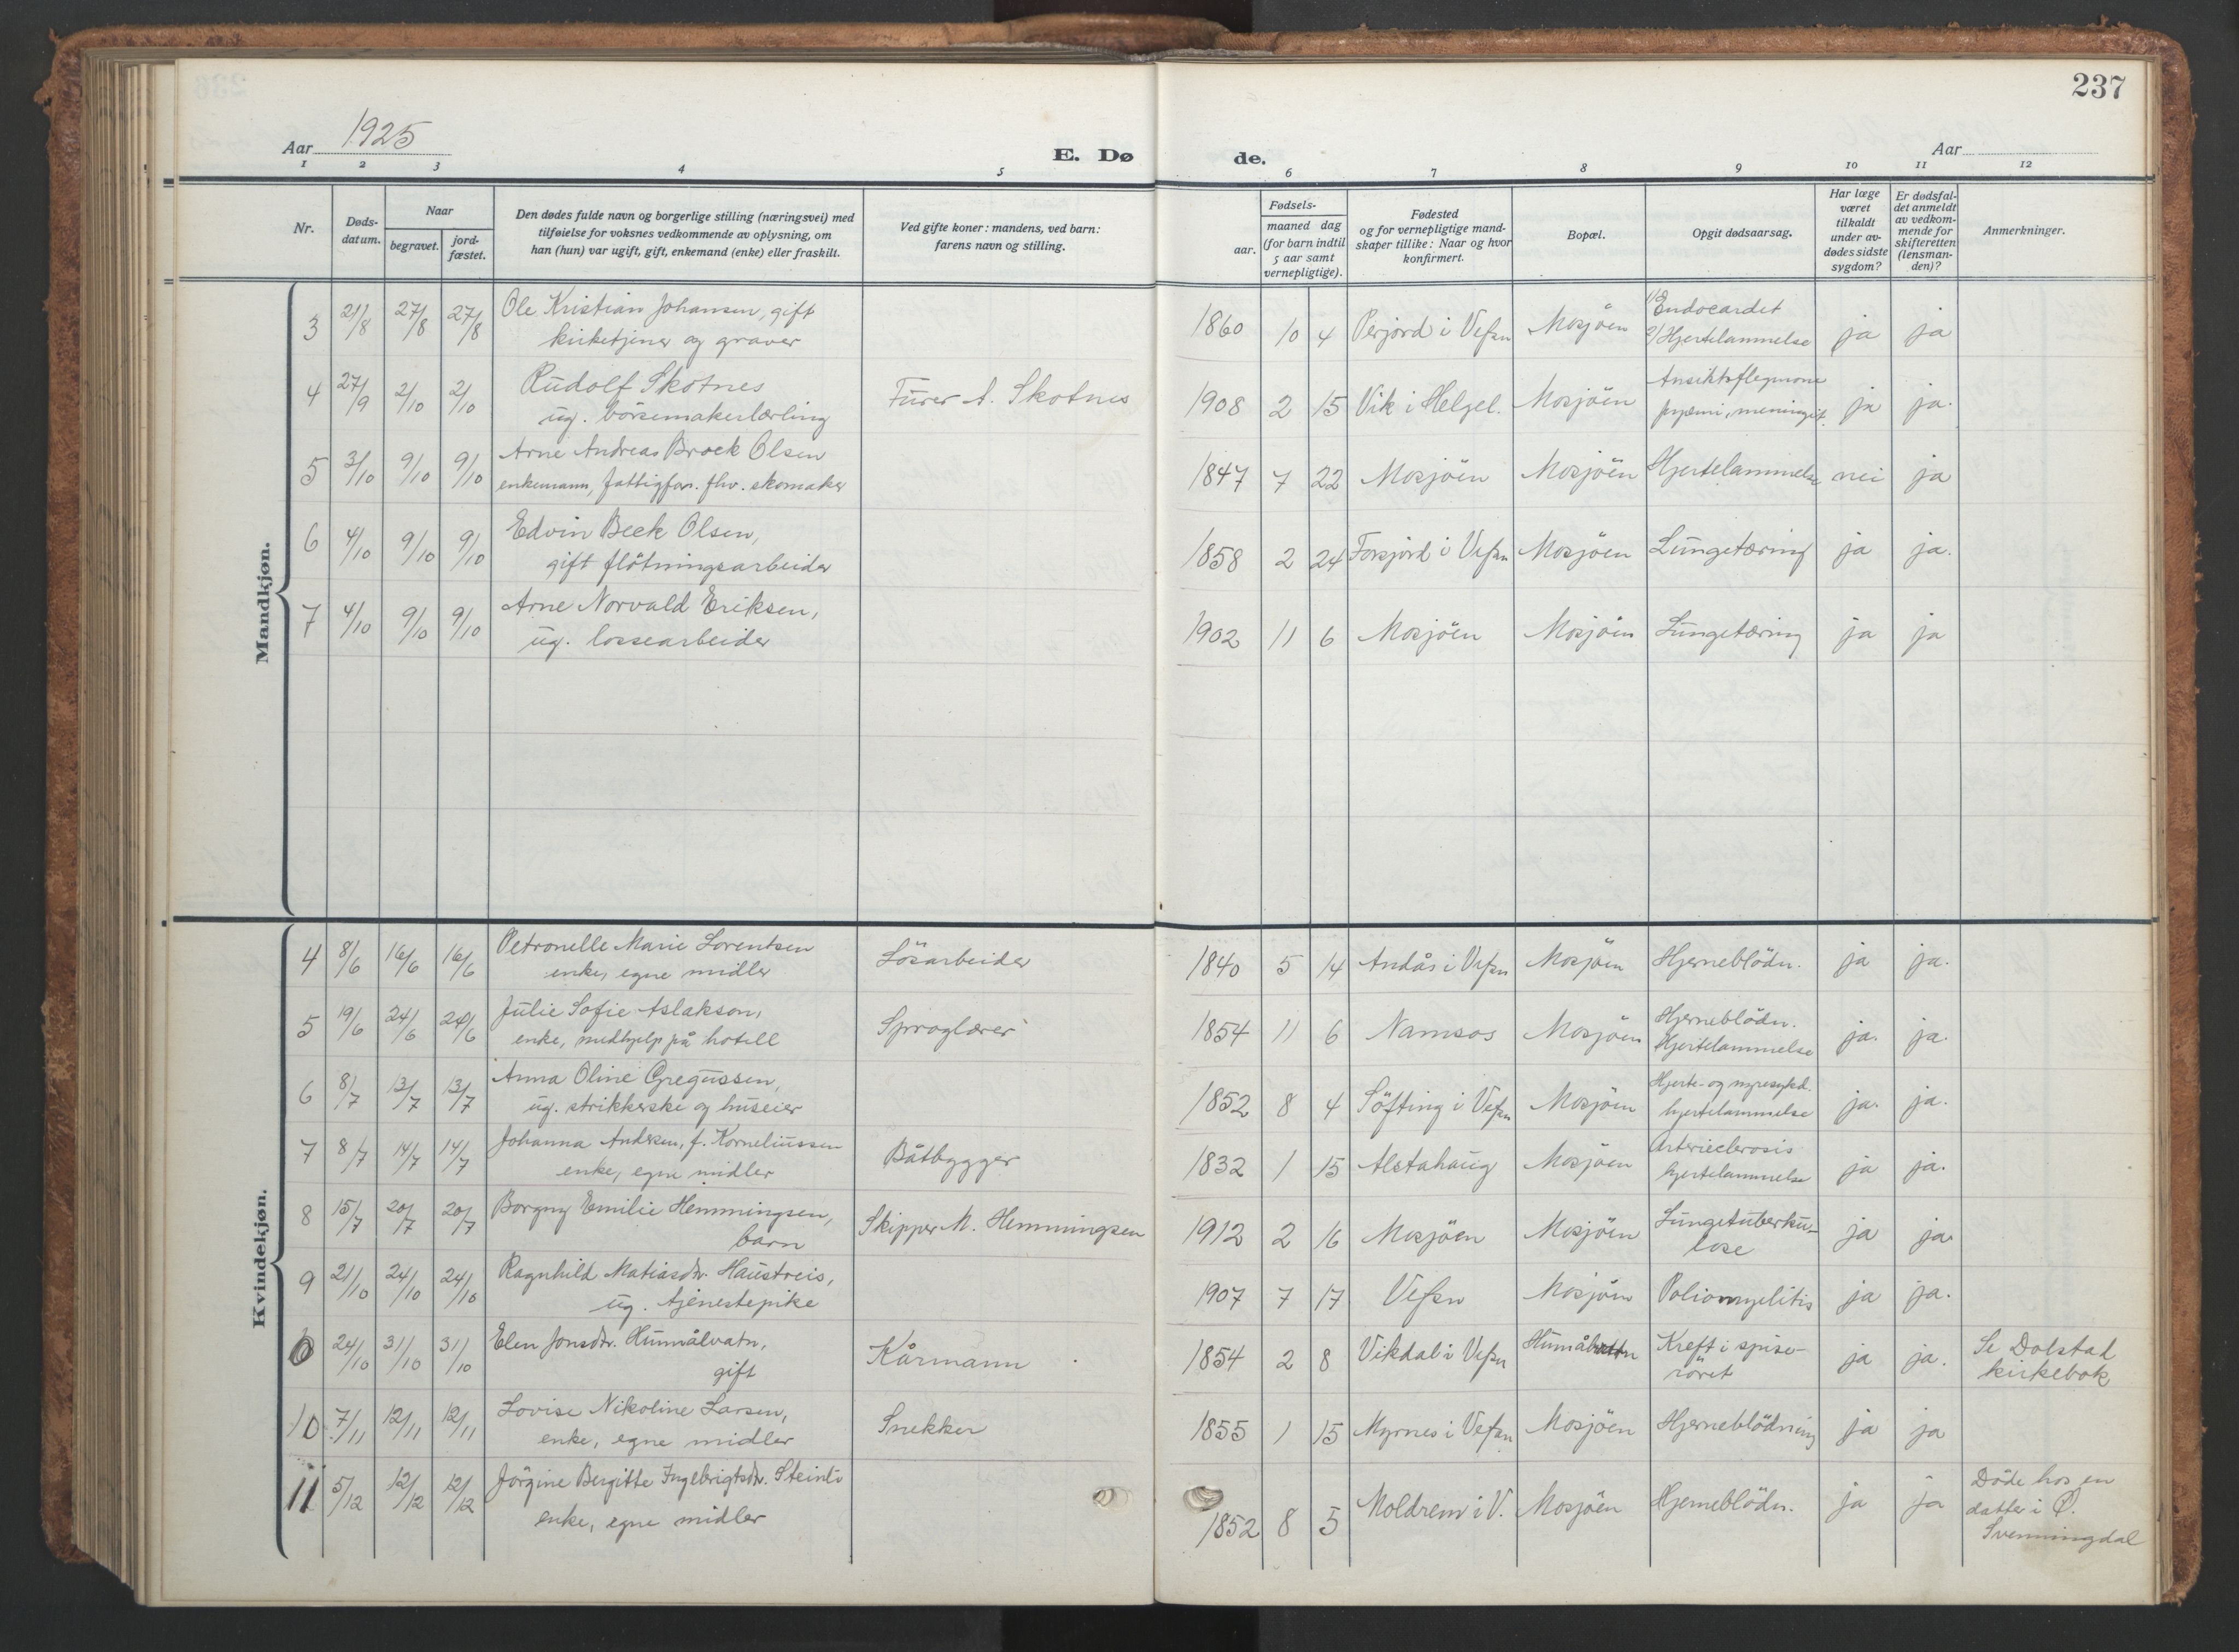 237
Aar 1925
E. Dø de.
Aar
1 2 3 4 5 6 7 8 9 10 11 12
Nr.
Døds-
datum.
Naar
begravet.
jord-
fæstet.
Den dødes fulde navn og borgerlige stilling (næringsvei) med
tilføielse for voksnes vedkommende av oplysning, om
han (hun) var ugift, gift, enkemand (enke) eller fraskilt.
Ved gifte koner: mandens, ved barn:
farens navn og stilling.
Fødsels-
aar.
maaned dag
(for barn indtil
5 aar samt
vernepligtige).
Fødested
og for vernepligtige mand-
skaper tillike: Naar og hvor
konfirmert.
Bopæl.
Opgit dødsaarsag.
Har læge
været
tilkaldt
under av-
dødes sidste
sygdom?
Er dødsfal-
det anmeldt
av vedkom-
mende for
skifteretten
(lensman-
den)?
Anmerkninger.
Mandkjøn.
3 21/8 27/8 27/8 Ole Kristian Johansen, gift
kirketjener og graver
1860 10 4 Perjord i Vefsn Mosjöen 1) Endocardet
2) Hjertelammelse ja ja
4 27/9 2/10 2/10 Rudolf Skotnes
ug. börsemakerlærling
Furer A. Skotnes 1908 2 15 Vik i Helgel. Mosjöen Ansiktsflegmone
pyæmi, meningit. ja ja.
5 3/10 9/10 9/10 Arne Andreas Brock Olsen
enkemann, fattigfor. fhv. skomaker
1847 7 22 Mosjöen Mosjöen Hjertelammelse nei ja
6 4/10 9/10 9/10 Edvin Beck Olsen,
gift flötningsarbeider
1858 2 24 Forsjord i Vefsn Mosjöen Lungetæring ja ja.
7 4/10 9/10 9/10 Arne Norvald Eriksen,
ug. lossearbeider
1902 11 6 Mosjöen Mosjöen Lungetæring ja ja
Kvindekjøn.
4 8/6 16/6 16/6 Petronelle Marie Lorentsen
enke, egne midler
Lösarbeider 1840 5 14 Andås i Vefsn Mosjöen Hjerneblödn. ja ja.
5 19/6 24/6 24/6 Julie Sofie Aslakson,
enke, medhjelp på hotell
Sproglærer 1854 11 6 Namsos Mosjöen Hjerneblödn.
Hjertelammelse ja. ja.
6 8/7 13/7 13/7 Anna Oline Gregussen,
ug. strikkerske og huseier
1852 8 4 Söfting i Vefsn Mosjöen Hjerte- og nyresykd.
hjertelammelse ja. ja.
7 8/7 14/7 14/7 Johanna Andersen, f. Korneliussen
enke, egne midler
Båtbygger 1832 1 15 Alstahaug Mosjöen Arterieclerosis
hjertelammelse ja ja.
8 15/7 20/7 20/7 Borgny Emilie Hemmingsen,
barn
Skipper M. Hemmingsen 1912 2 16 Mosjöen Mosjöen Lungetuberku-
lose ja ja.
9 21/10 24/10 24/10 Ragnhild Matiasdtr. Haustreis,
ug. tjenestepike
1907 7 17 Vefsn Mosjöen Poliomyelitis ja ja.
24/10 31/10 31/10 Elen Jonsdtr. Hunnålvatn,
gift
Kårmann 1854 2 8 Vikdal i Vefsn Kreft i spise-
röret ja ja. Se Dolstad
kirkebok
10 7/11 12/11 12/11 Lovise Nikoline Larsen,
enke, egne midler
Snekker 1855 1 15 Myrnes i Vefsn Mosjöen Hjerneblödning ja ja
11 5/12 12/12 12/12 Jörgine Bergitte Ingebrigtsdtr.
enke, egne midler
1852 8 5 Moldrem i V. Mosjöen Hjerneblödn. ja ja Döde hos en
datter i Ö.
Svenningdal